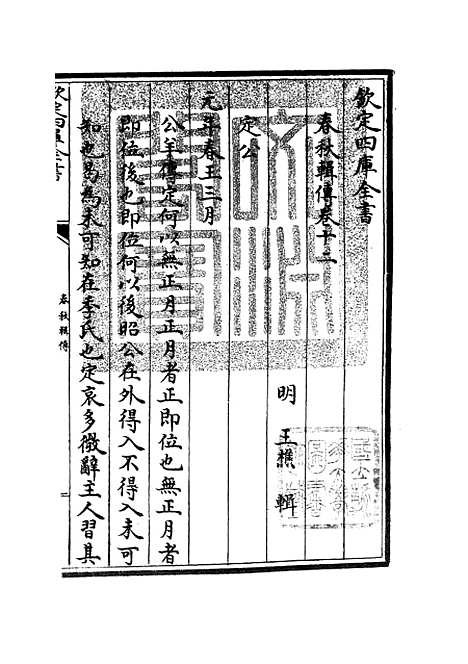 欽定四庫全書
春秋輯傳卷十二
明 王樵 輯
定公
元年春王三月
公羊傳定何以無正月正月者正即位也無正月者
即位後也即位何以後昭公在外得入不得入未可
知也曷為未可知在季氏也定哀多微辭主人習其
欽定四庫全書
春秋輯傳